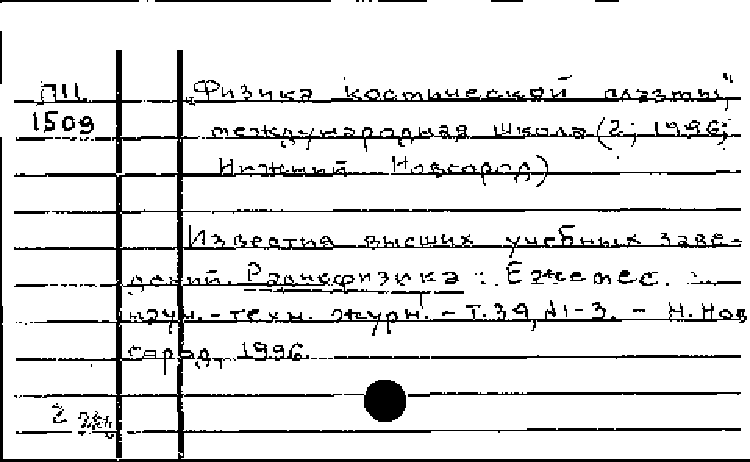 П11
1509
"Физика космической плазмы",
международная школа (2; 1996;
Нижний Новгород)
Известия высших учебных заве-
дений. Радиофизика: Ежемес.
науч.-техн. журн. - Т.39, №1-3. - Н. Нов
город, 1996.
2